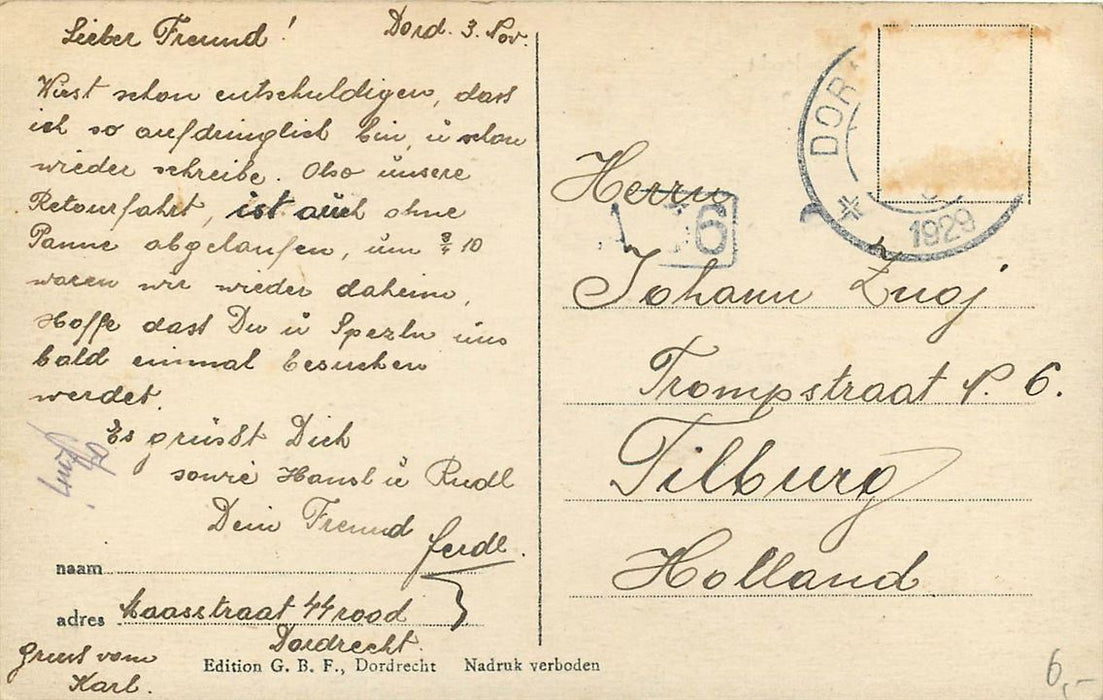 Lieber Freund! Dord. 3. Nov.
Wirst schon entschuldigen, dass
ich so aufdringlich bin, u schon
wieder schreibe. Also unsere
Retourfahrt, ist auch ohne
Panne abgelaufen, um ¾ 10
waren wir wieder daheim,
Hoffe dass Du u Spezln uns
bald einmal besuchen
werdet.
Es grüsst Dich
sowie Hansl u Rudl
Dein Freund
ferdl.
naam
adres Maasstraat 44 rood
Dordrecht.
Gruss vom
Karl.
Edition G. B. F., Dordrecht Nadruk verboden
DOR
1929
6
Herrn
Johann
Trompstraat N. 6.
Tilburg
Holland
6,-